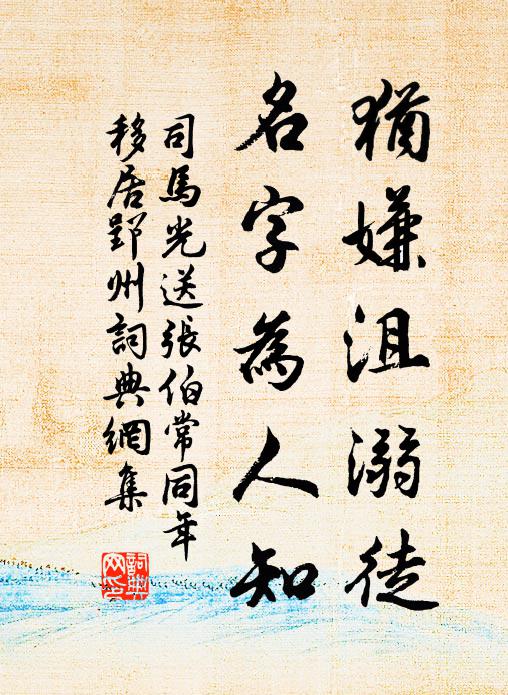 猶嫌沮溺徒
名字為人知
司馬光送張伯常同年
移居郢州詞典網集